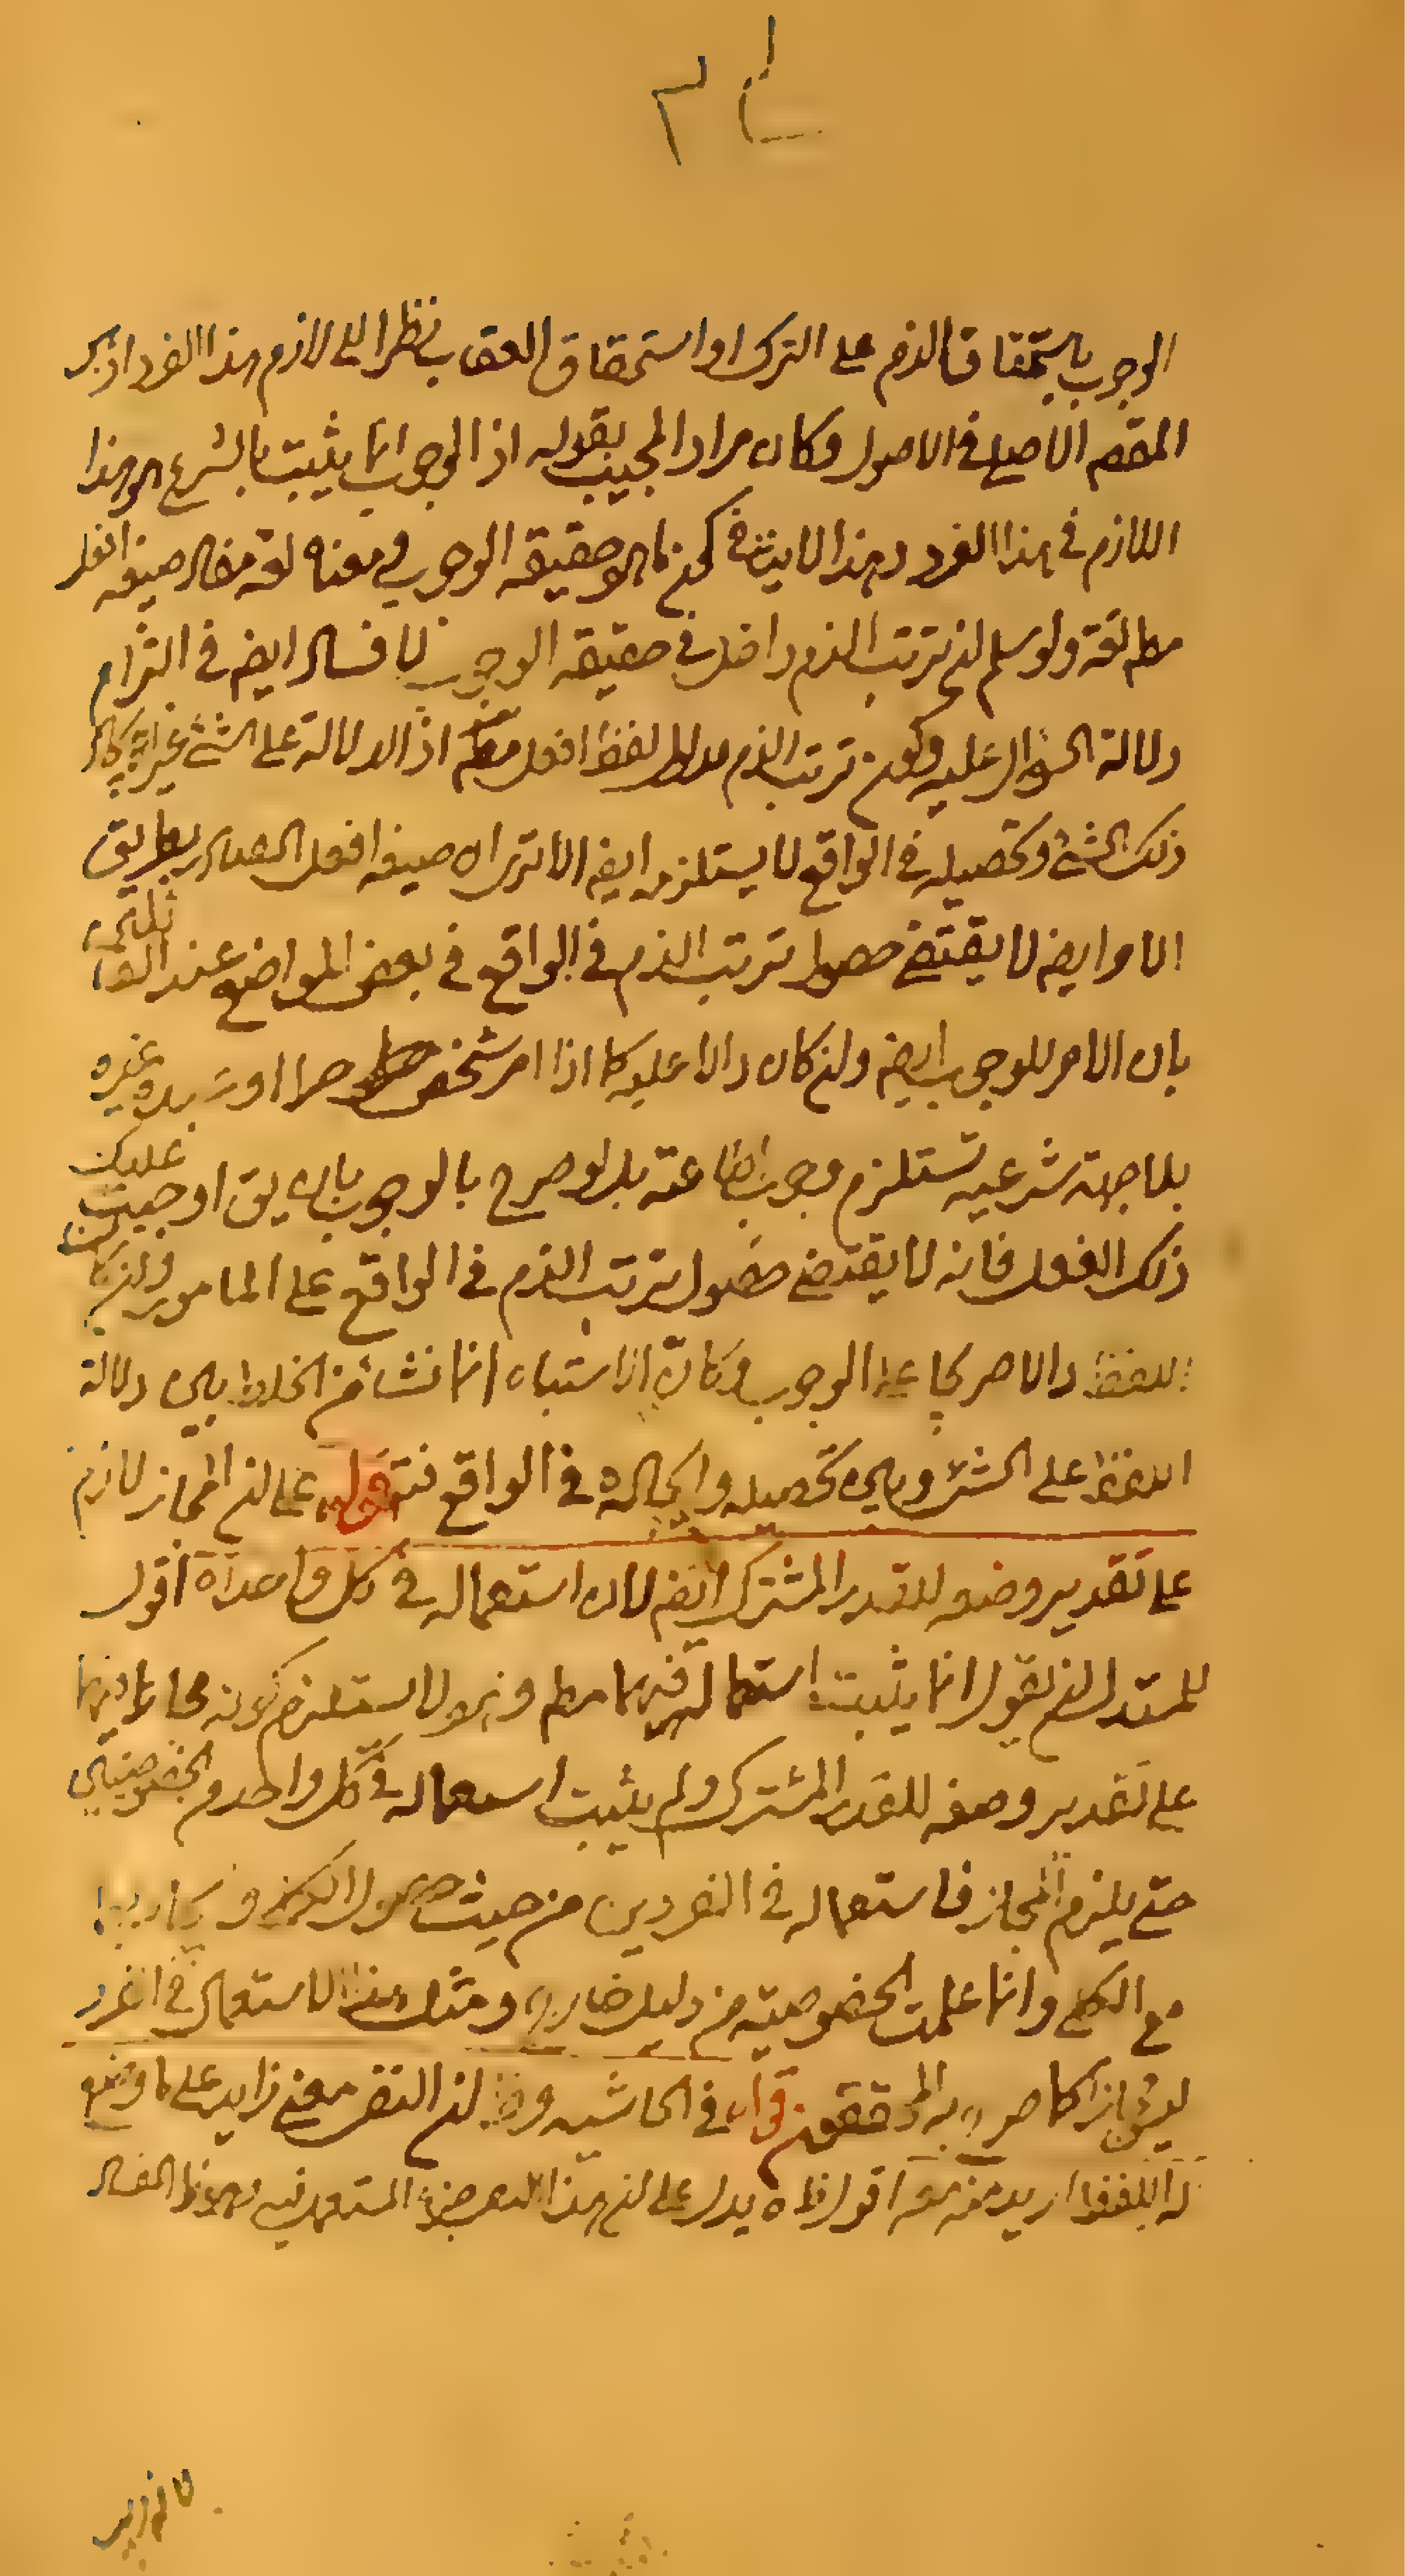 الوجوب باستحقاق الذم على الترك او استحقاق العقاب نظرا الى لازم هذا الفرد اذ هو
المقصد الاصلي في الاصول وكان مراد المجيب بقوله اذ الوجوب انما يثبت بالشرع هو هذا
اللازم في هذا الفرد وهذا لا ينافي كون ما هو حقيقة الوجوب في معناه لغة مفاد صيغة افعل
مط لغة ولو سلم ان ترتب الذم داخل في حقيقة الوجوب لا فساد ايض في التزام
دلالة السؤال عليه وكون ترتب الذم مدلول لفظ افعل مط اذ الدلالة على الشئ غير ايجاد
ذلك الشئ وتحصيله في الواقع لا يستلزمه ايض الا ترى ان صيغة افعل الصادر بطريق
الامر ايض لا يقتضي حصول ترتب الذم في الواقع في بعض المواضع عند القائلين
بان الامر للوجوب ايض وان كان دالا عليه كما اذا امر شخص حرا او عبده وغيره
بلا جهة شرعية تستلزم وجوب اطاعته بل لو صرح بالوجوب بان يق اوجبت عليك
ذلك الفعل فانه لا يقتضي حصول ترتب الذم في الواقع على المامور وان كان
اللفظ دالا صريحا على الوجوب وكان الاشتباه انما نشأ من الخلط بين دلالة
اللفظ على الشئ وبين تحصيله وايجاده في الواقع فت قوله على ان المجاز لازم
على تقدير وضعه للقدر المشترك ايض لان استعماله في كل واحد اه اقول
للمستدل ان يقول انما يثبت استعماله فيهما مط وهو لا يستلزم كونه مجازا فيهما
على تقدير وضعه للقدر المشترك ولم يثبت استعماله في كل واحد من الخصوصيتين
حتى يلزم المجاز فاستعماله في الفردين من حيث حصول الكلي
مع الكلي وانما علمت الخصوصية من دليل خارج ومثل هذا الاستعمال في الفرد
ليس مجازا كما صرح به المحققون قوله في الحاشية ان النقض معنى زايد على ما وضع
له اللفظ اريد منه معه اقول ظاه يدل على ان هذا المستعمل فيه